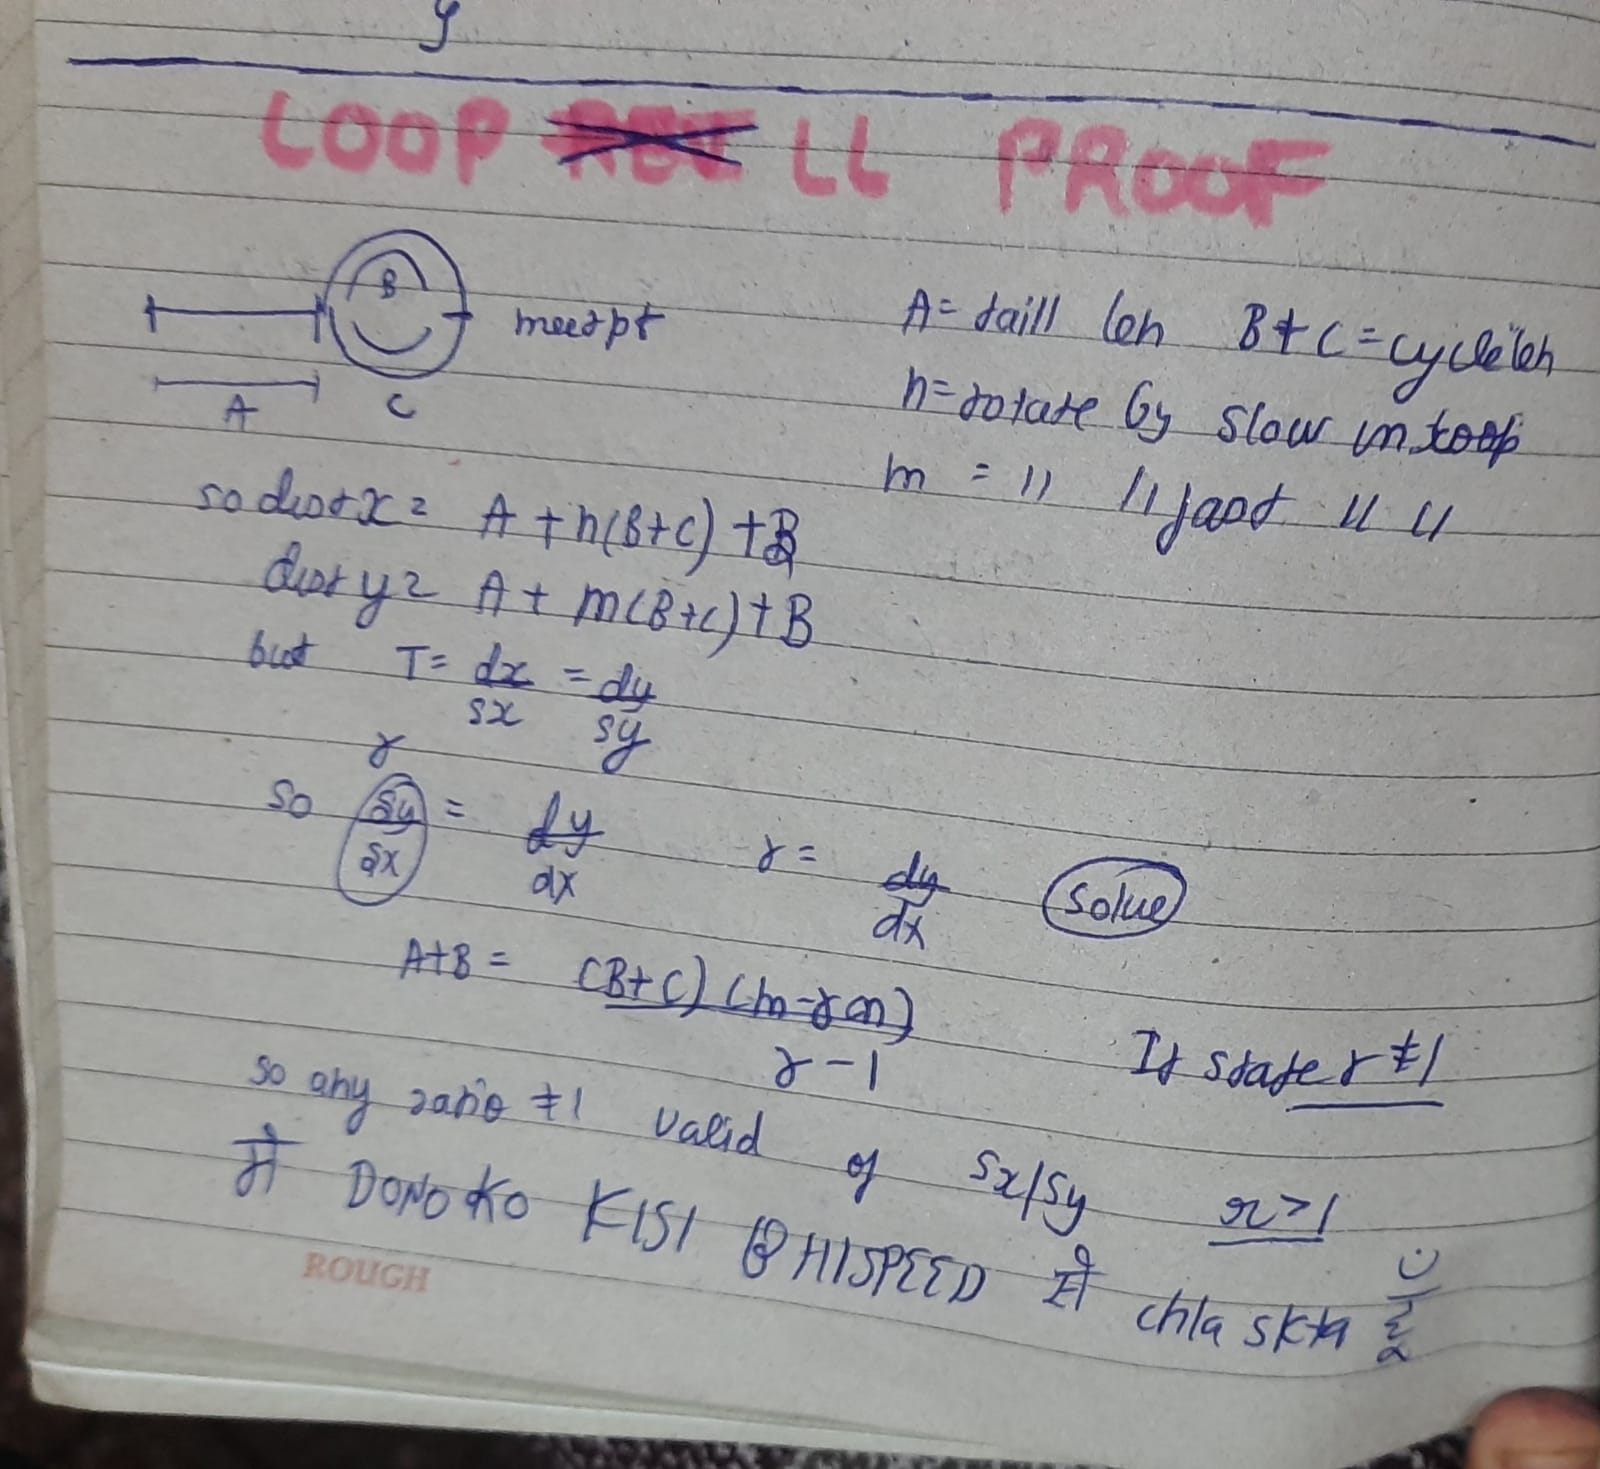 y
LOOP LL PROOF
B
meetpt
A
C
A = taill len B+C = cycle len
n = rotate by slow in loop
m = " " fast " "
so dist x = A + n(B+C) + B
dist y = A + m(B+C) + B
but T = dx/sx = dy/sy
r
so sy/sx = dy/dx r = dy/dx solve
A+B = (B+C) (m-rn) / r-1
It state r ≠ 1
so any ratio ≠ 1 valid of sx/sy r > 1
मैं DONO KO KISI BHI SPEED से chla skta हूँ
ROUGH